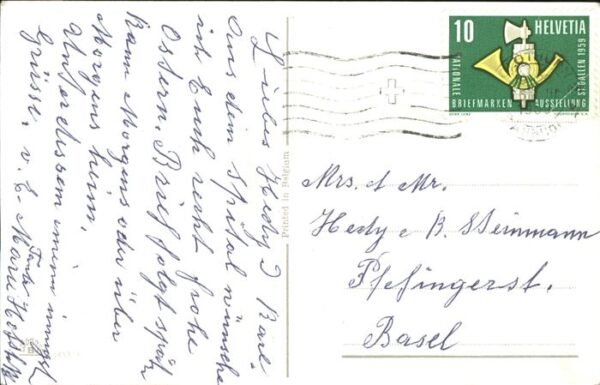 Liebes Hedy & Karl.
Aus dem Spital wünsche
ich Euch recht frohe
Ostern. Brief folgt spät.
Kann Morgens oder über
Morgens heim.
Unterdessem immer
Grüsse. v. E.
Tante
Marie
Printed in Belgium
10 HELVETIA
NATIONALE
BRIEFMARKEN AUSSTELLUNG
ST. GALLEN 1959
Mrs. & Mr.
Hedy & B. Steinmann
Pfeffingerst.
Basel